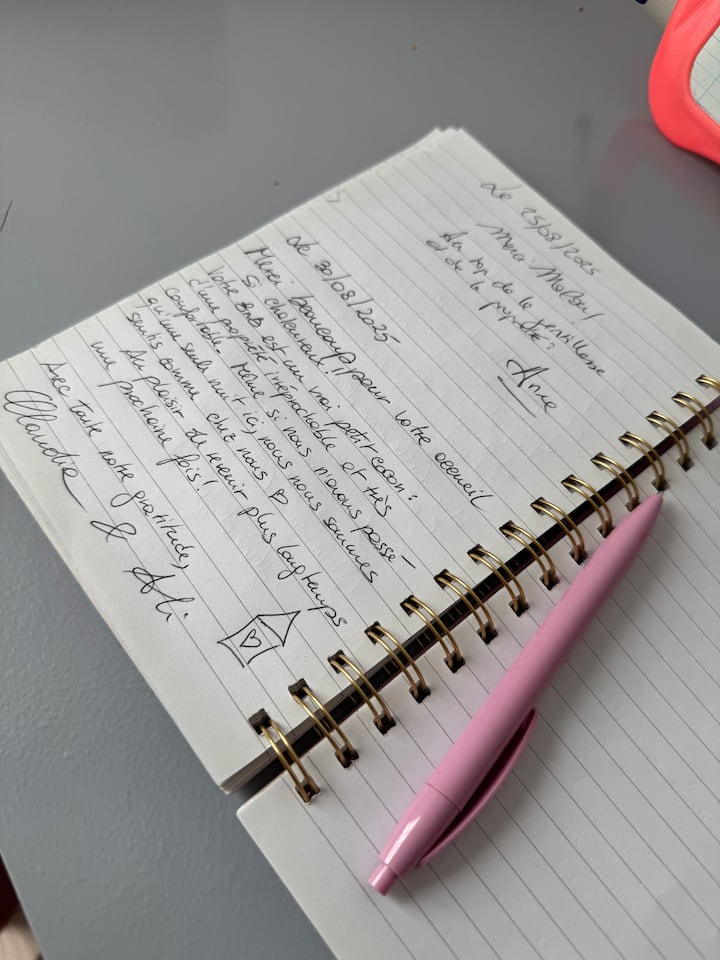 Le 25/08/2025
Merci
Au top de la gentillesse
et de la propreté.
Anne
Le 30/08/2025
Merci beaucoup pour votre accueil
si chaleureux!
Votre BnB est un vrai petit cocon:
d'une propreté irréprochable et très
confortable. Même si nous n'avons passé
qu'une seule nuit ici, nous nous sommes
sentis comme chez nous ♡
Au plaisir de revenir plus longtemps
une prochaine fois!
Avec toute notre gratitude,
Claudia & Ali